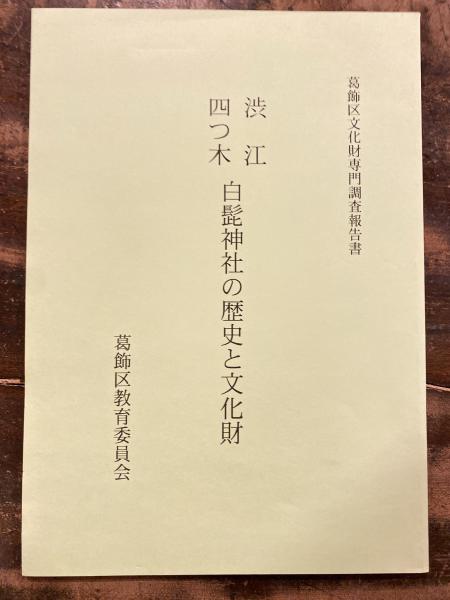 葛飾区文化財専門調査報告書
渋江
四つ木
白髭神社の歴史と文化財
葛飾区教育委員会